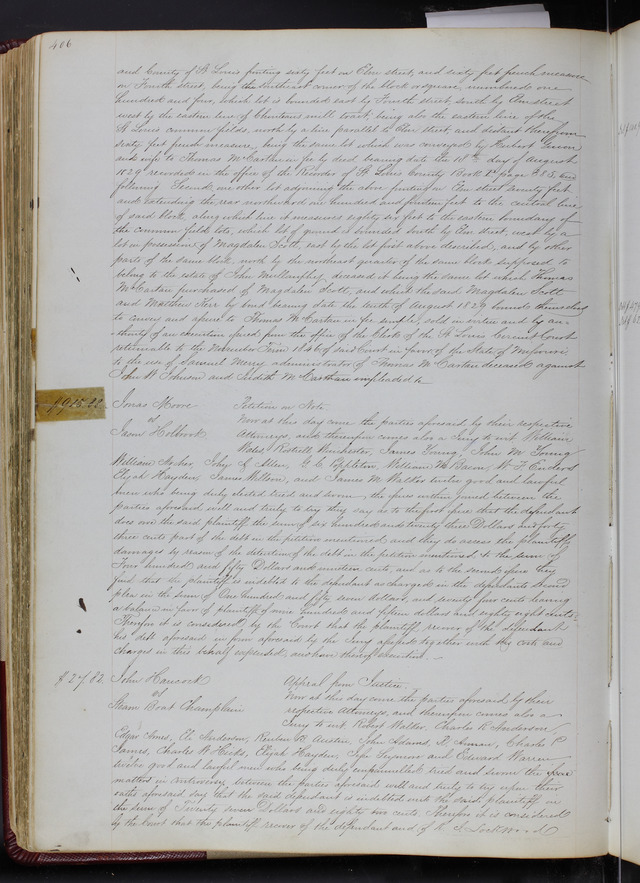 406
and County of St Louis fronting sixty feet on Elm street, and sixty feet french measure
on Fourth street, being the Southeast corner of the block or square, numbered one
hundred and five, which lot is bounded east by Fourth street, south by Elm street
west by the eastern line of mill tract, being also the eastern line of the
St Louis common fields, north by a line parallel to Elm street, and distant therefrom
sixty feet french measure, being the same lot which was conveyed by
and wife to Thomas McCartan in fee by deed bearing date the 10th day of August
1829 recorded in the office of the Recorder of St Louis County Book page and
following. Second another lot adjoining the above fronting on Elm street seventy feet
and extending the rear northward one hundred and feet to the central line
of said block, along which line it measures eighty six feet to the eastern boundary of
the common field lots, which lot of ground is bounded South by Elm street, west by a
lot in possession of Magdalen Scott, east by the lot first above described, and by other
parts of the same block, north by the northeast quarter of the same block supposed to
belong to the estate of John Mullanphy, deceased it being the same lot which Thomas
McCartan purchased of Magdalen Scott, and which the said Magdalen Scott
and Matthew Kerr by bond bearing date the tenth of August 1829 bound themselves
to convey and assure to Thomas McCartan in fee simple, sold in virtue and by au-
thority of an execution issued from the office of the Clerk of the St Louis Circuit Court
returnable to the November Term 1846, of said Court in favor of the State of Missouri
to the use of Samuel Merry administrator of Thomas McCartan deceased against
John W Johnson and Judith McCartan impleaded &c
$915.88 Jonas Moore Petition on Note
vs Now at this day came the parties aforesaid by their respective
Jason Holbrook Attorneys, and thereupon comes also a Jury to wit William
Wales, Winchester, James Young, John M Young
William John Allen, G. C. Appleton, William M Bacon, W F Enders
Elijah Hayden, James Wilson, and James M Watkes twelve good and lawful
men who being duly elected tried and sworn, the issues within joined between the
parties aforesaid well and truly to try they say as to the first issue that the defendant
does owe the said plaintiff the sum of six hundred and twenty three Dollars and forty
three cents part of the debt in the petition mentioned and they do assess the plaintiff's
damages by reason of the detention of the debt in the petition mentioned to the sum of
Four hundred and fifty Dollars and nineteen cents, and as to the second issue they
find that the plaintiff is indebted to the defendant as charged in the defendants second
plea in the sum of One hundred and fifty seven dollars and seventy four cents leaving
a balance in favor of plaintiff of nine hundred and fifteen dollars and eighty eight cents
Therefore it is considered by the Court that the plaintiff recover of the defendant
his debt aforesaid in form aforesaid by the Jury assessed together with his costs and
charges in this behalf expended and have thereof execution. —
$27.82. John Hancock Appeal from Justice
vs Now at this day came the parties aforesaid by their
Steam Boat Champlain respective Attorneys, and thereupon comes also a
Jury to wit, Robert Walker, Charles R Anderson,
Edgar Ames, Eli Anderson, Reuben B Austin, John Adams, Charles P
James, Charles R Hicks, Elijah Hayden, Seymour and Edward Warren
twelve good and lawful men who being duly empannelled tried and sworn the
matters in controversy between the parties aforesaid well and truly to try upon their
oaths aforesaid say that the said defendant is indebted unto the said plaintiff in
the sum of Twenty seven Dollars and eighty two cents. Therefore it is considered
by the Court that the plaintiff recover of the defendant and of R. S. Lockwood